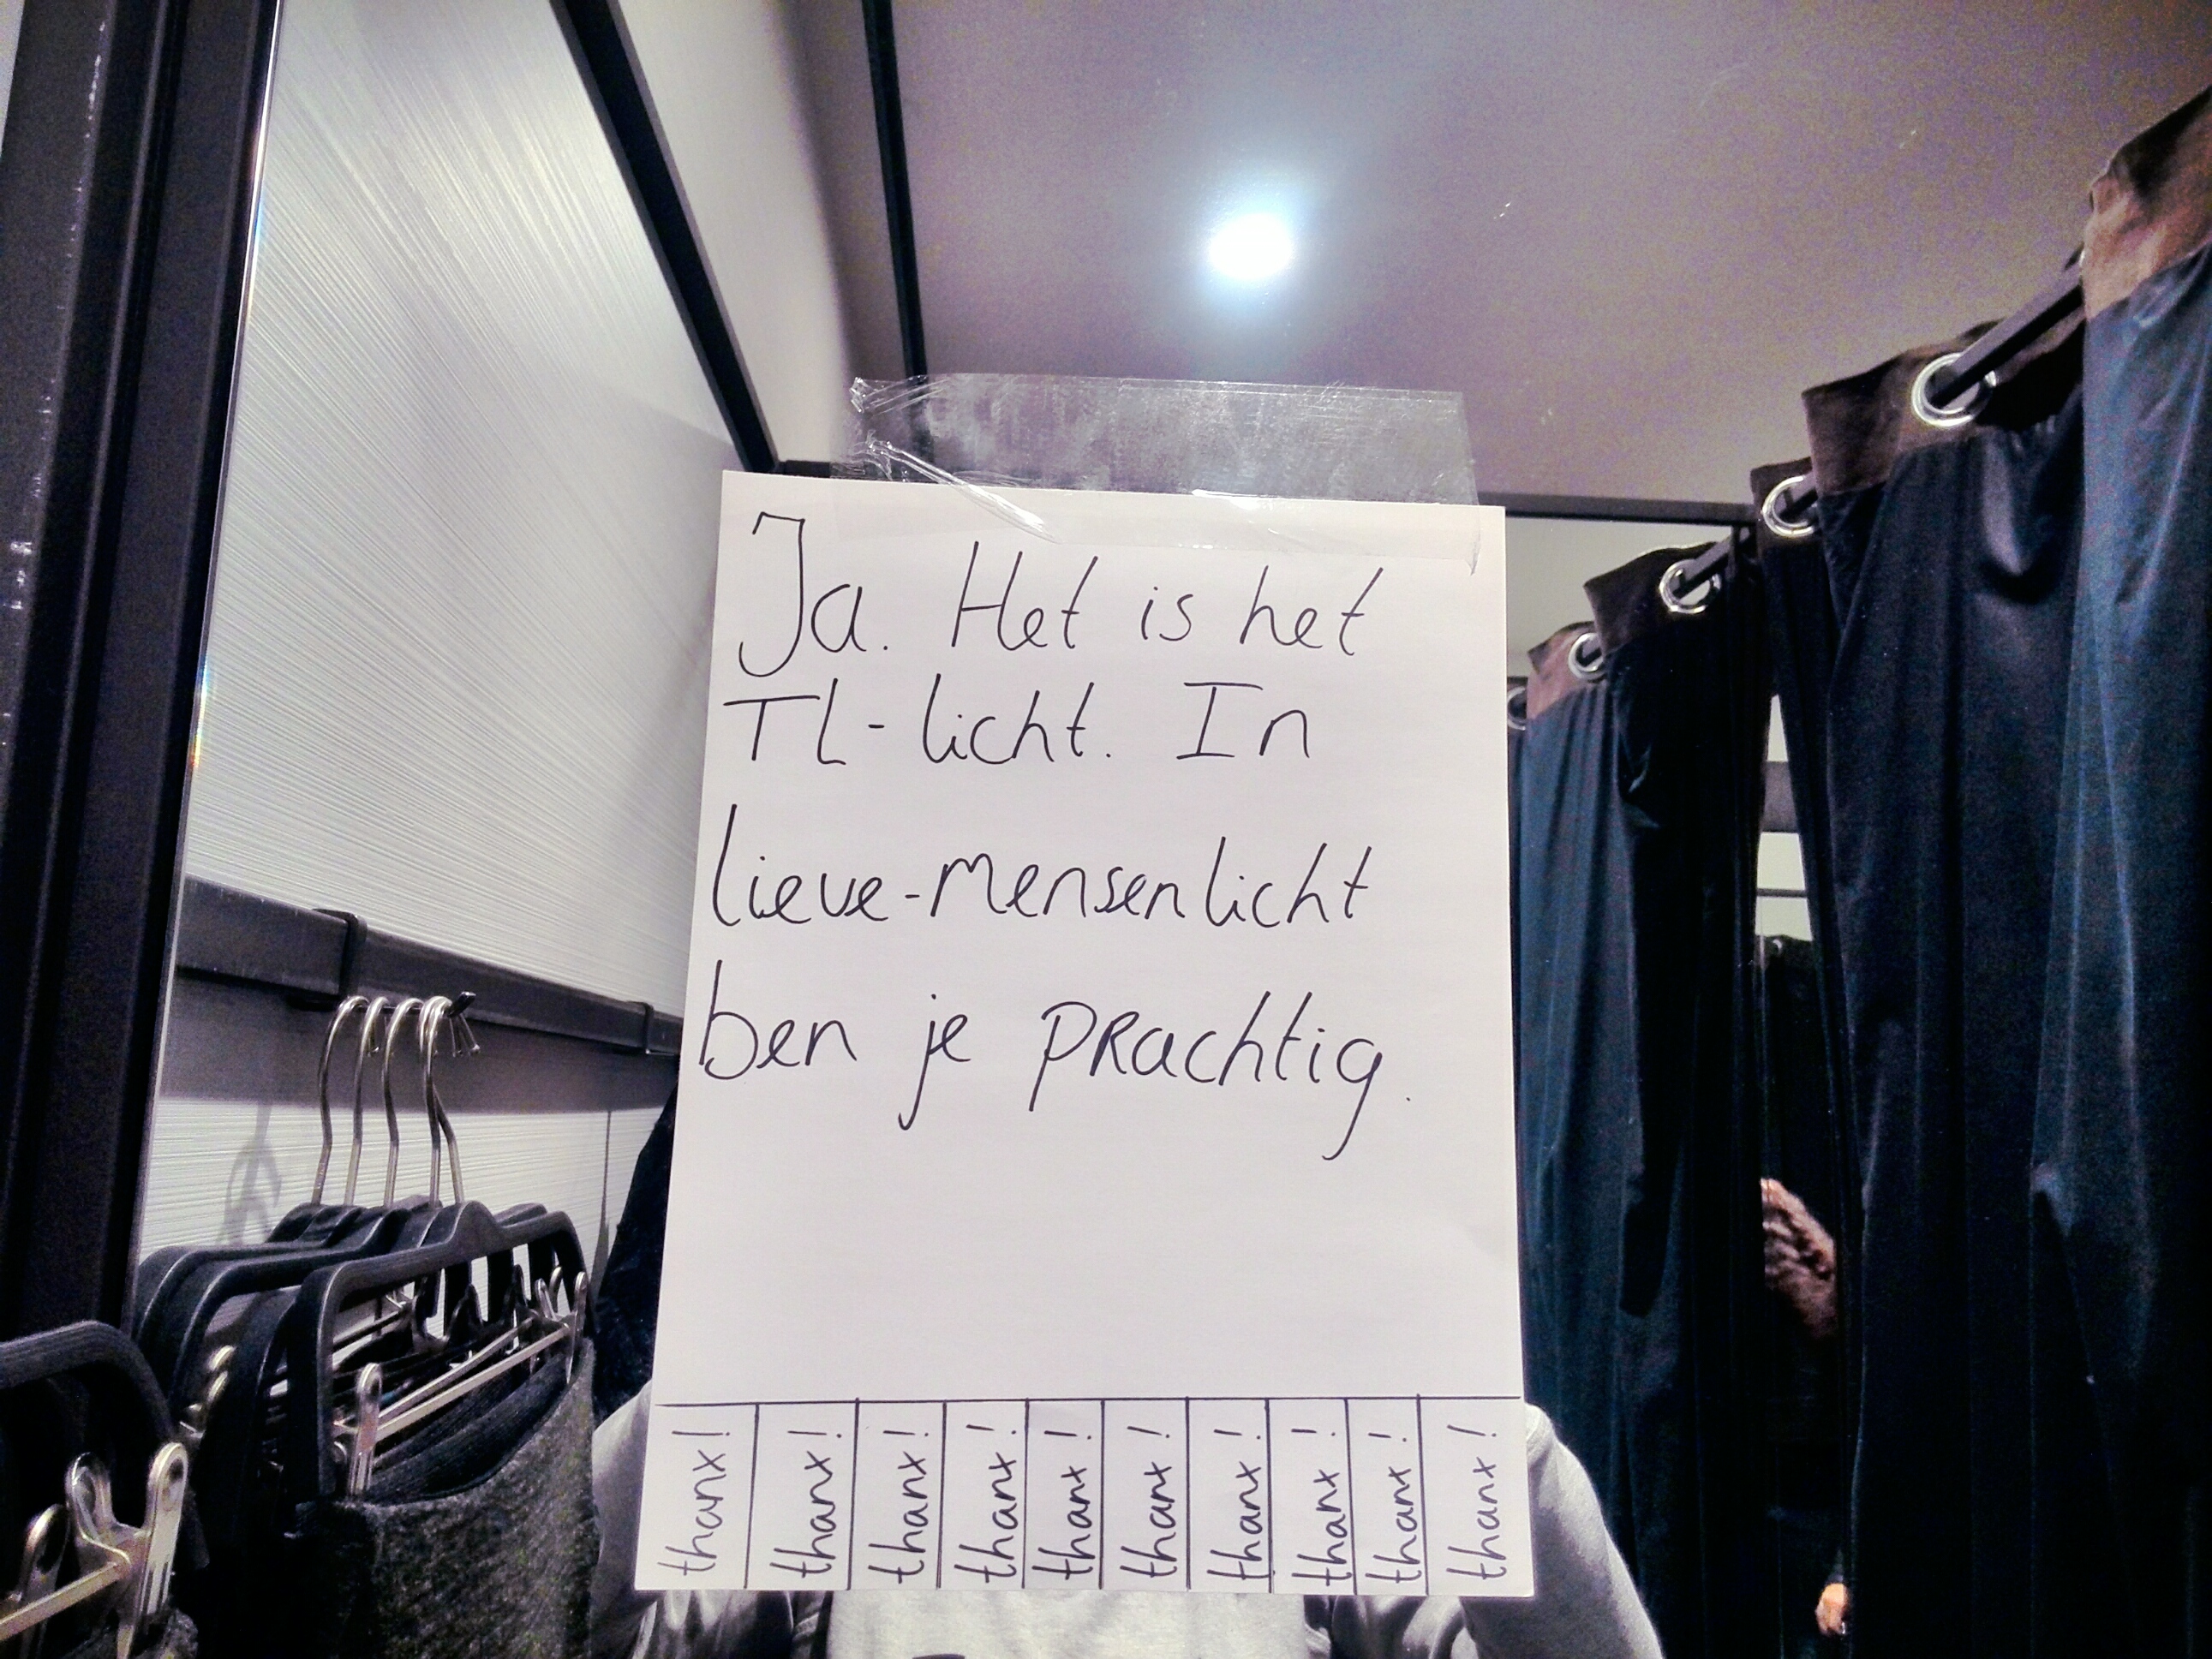 Ja. Het is het
TL-licht. In
lieve-mensenlicht
ben je prachtig.
thanx!
thanx!
thanx!
thanx!
thanx!
thanx!
thanx!
thanx!
thanx!
thanx!